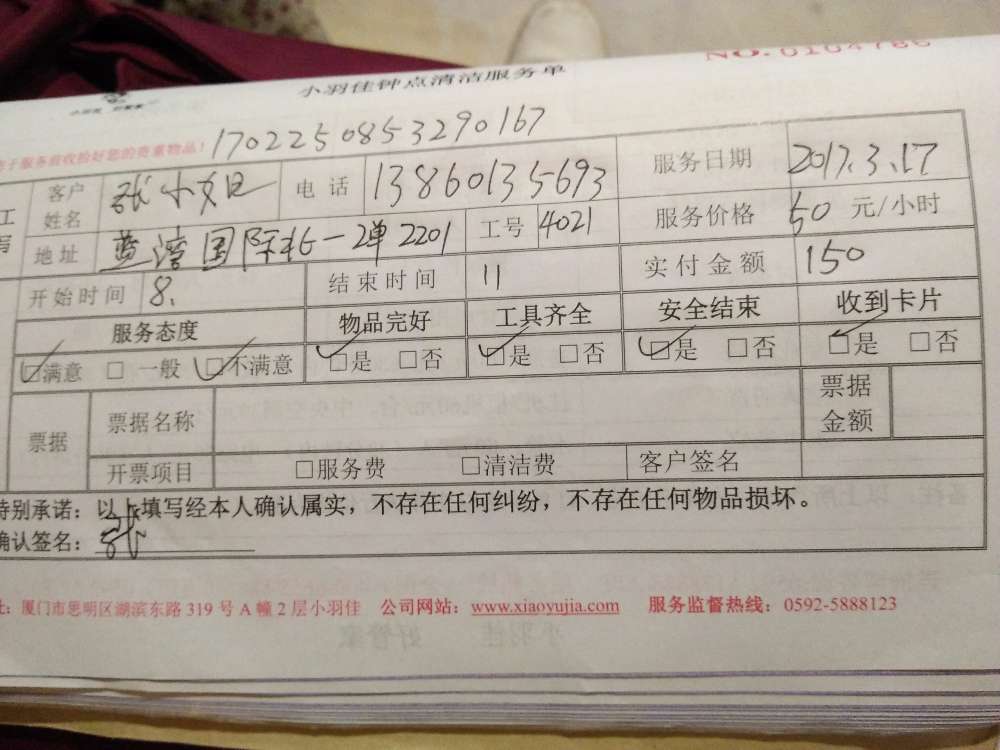 NO. 0104786
小羽佳钟点清洁服务单
服务前收拾好您的贵重物品！ 1702250853290167
客户姓名 张小姐 电话 13860135693 服务日期 2017.3.17
地址 蓝湾国际 2201 工号 4021 服务价格 50 元/小时
开始时间 8. 结束时间 11 实付金额 150
服务态度 物品完好 工具齐全 安全结束 收到卡片
☑满意 □一般 ☑不满意 ☑是 □否 ☑是 □否 ☑是 □否 ☑是 □否
票据 票据名称 票据金额
开票项目 □服务费 □清洁费 客户签名
特别承诺：以上填写经本人确认属实，不存在任何纠纷，不存在任何物品损坏。
确认签名：张
址：厦门市思明区湖滨东路 319 号 A 幢 2 层小羽佳 公司网站：www.xiaoyujia.com 服务监督热线：0592-5888123